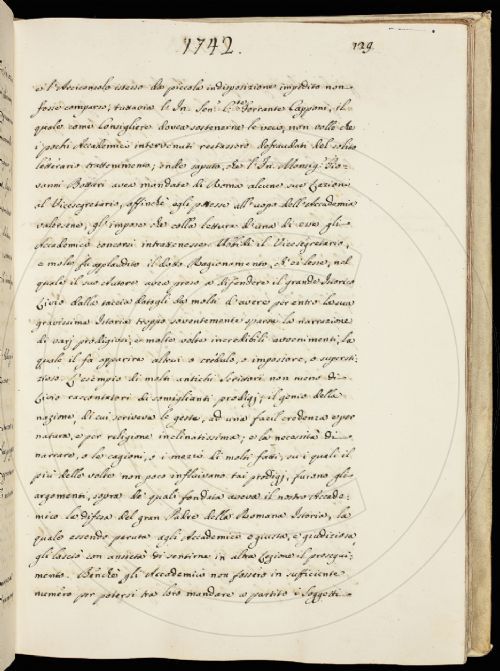 1742.
129
e l'Arciconsolo istesso da piccola indisposizione impedito non
fosse comparso; tuttavia l'In. Sen.
quale come Consigliere dovea sostenerne le veci, non volle che
i pochi Accademici intervenuti restassero defraudati del solito
letterario trattenimento; onde saputo, che l'In. Monsig. Gio-
vanni Bottari avea mandate di Roma alcune sue Lezioni
al Vicesegretario, affinchè egli potesse all'uopo dell'Accademia
valersene, gl'impose che colla lettura d'una di esse gli
Accademici concorsi intrattenesse. Ubbidì il Vicesegretario,
e molto fu applaudito il dotto Ragionamento, ch'ei lesse, nel
quale il suo Autore avea preso a difendere il grande Istorico
Livio dalla taccia datagli da molti d'avere per entro la sua
gravissima Istoria troppo soventemente sparsa la narrazione
di varj prodigiosi, e molte volte incredibili avvenimenti, la
quale il fa apparire altrui o credulo, o impostore, o supersti-
zioso. L'esempio di molti antichi Scrittori non meno di
Livio raccontatori di somiglianti prodigj; il genio della
nazione di cui scriveva le gesta, ad una facil credenza e per
natura, e per religione inclinatissima; e la necessità di
narrare, o le cagioni, o i mezzi di molti fatti, su i quali il
più delle volte non poco influivano tai prodigj, furono gli
argomenti, sopra de' quali fondata aveva il nostro Accade-
mico la difesa del gran Padre della Romana Istoria, la
quale essendo paruta agli Accademici e giusta, e giudiziosa
gli lasciò con ansietà di sentirne in altra Lezione il prosegui-
mento. Benchè gli Accademici non fossero in sufficiente
numero per potersi tra loro mandare a partito i Soggetti